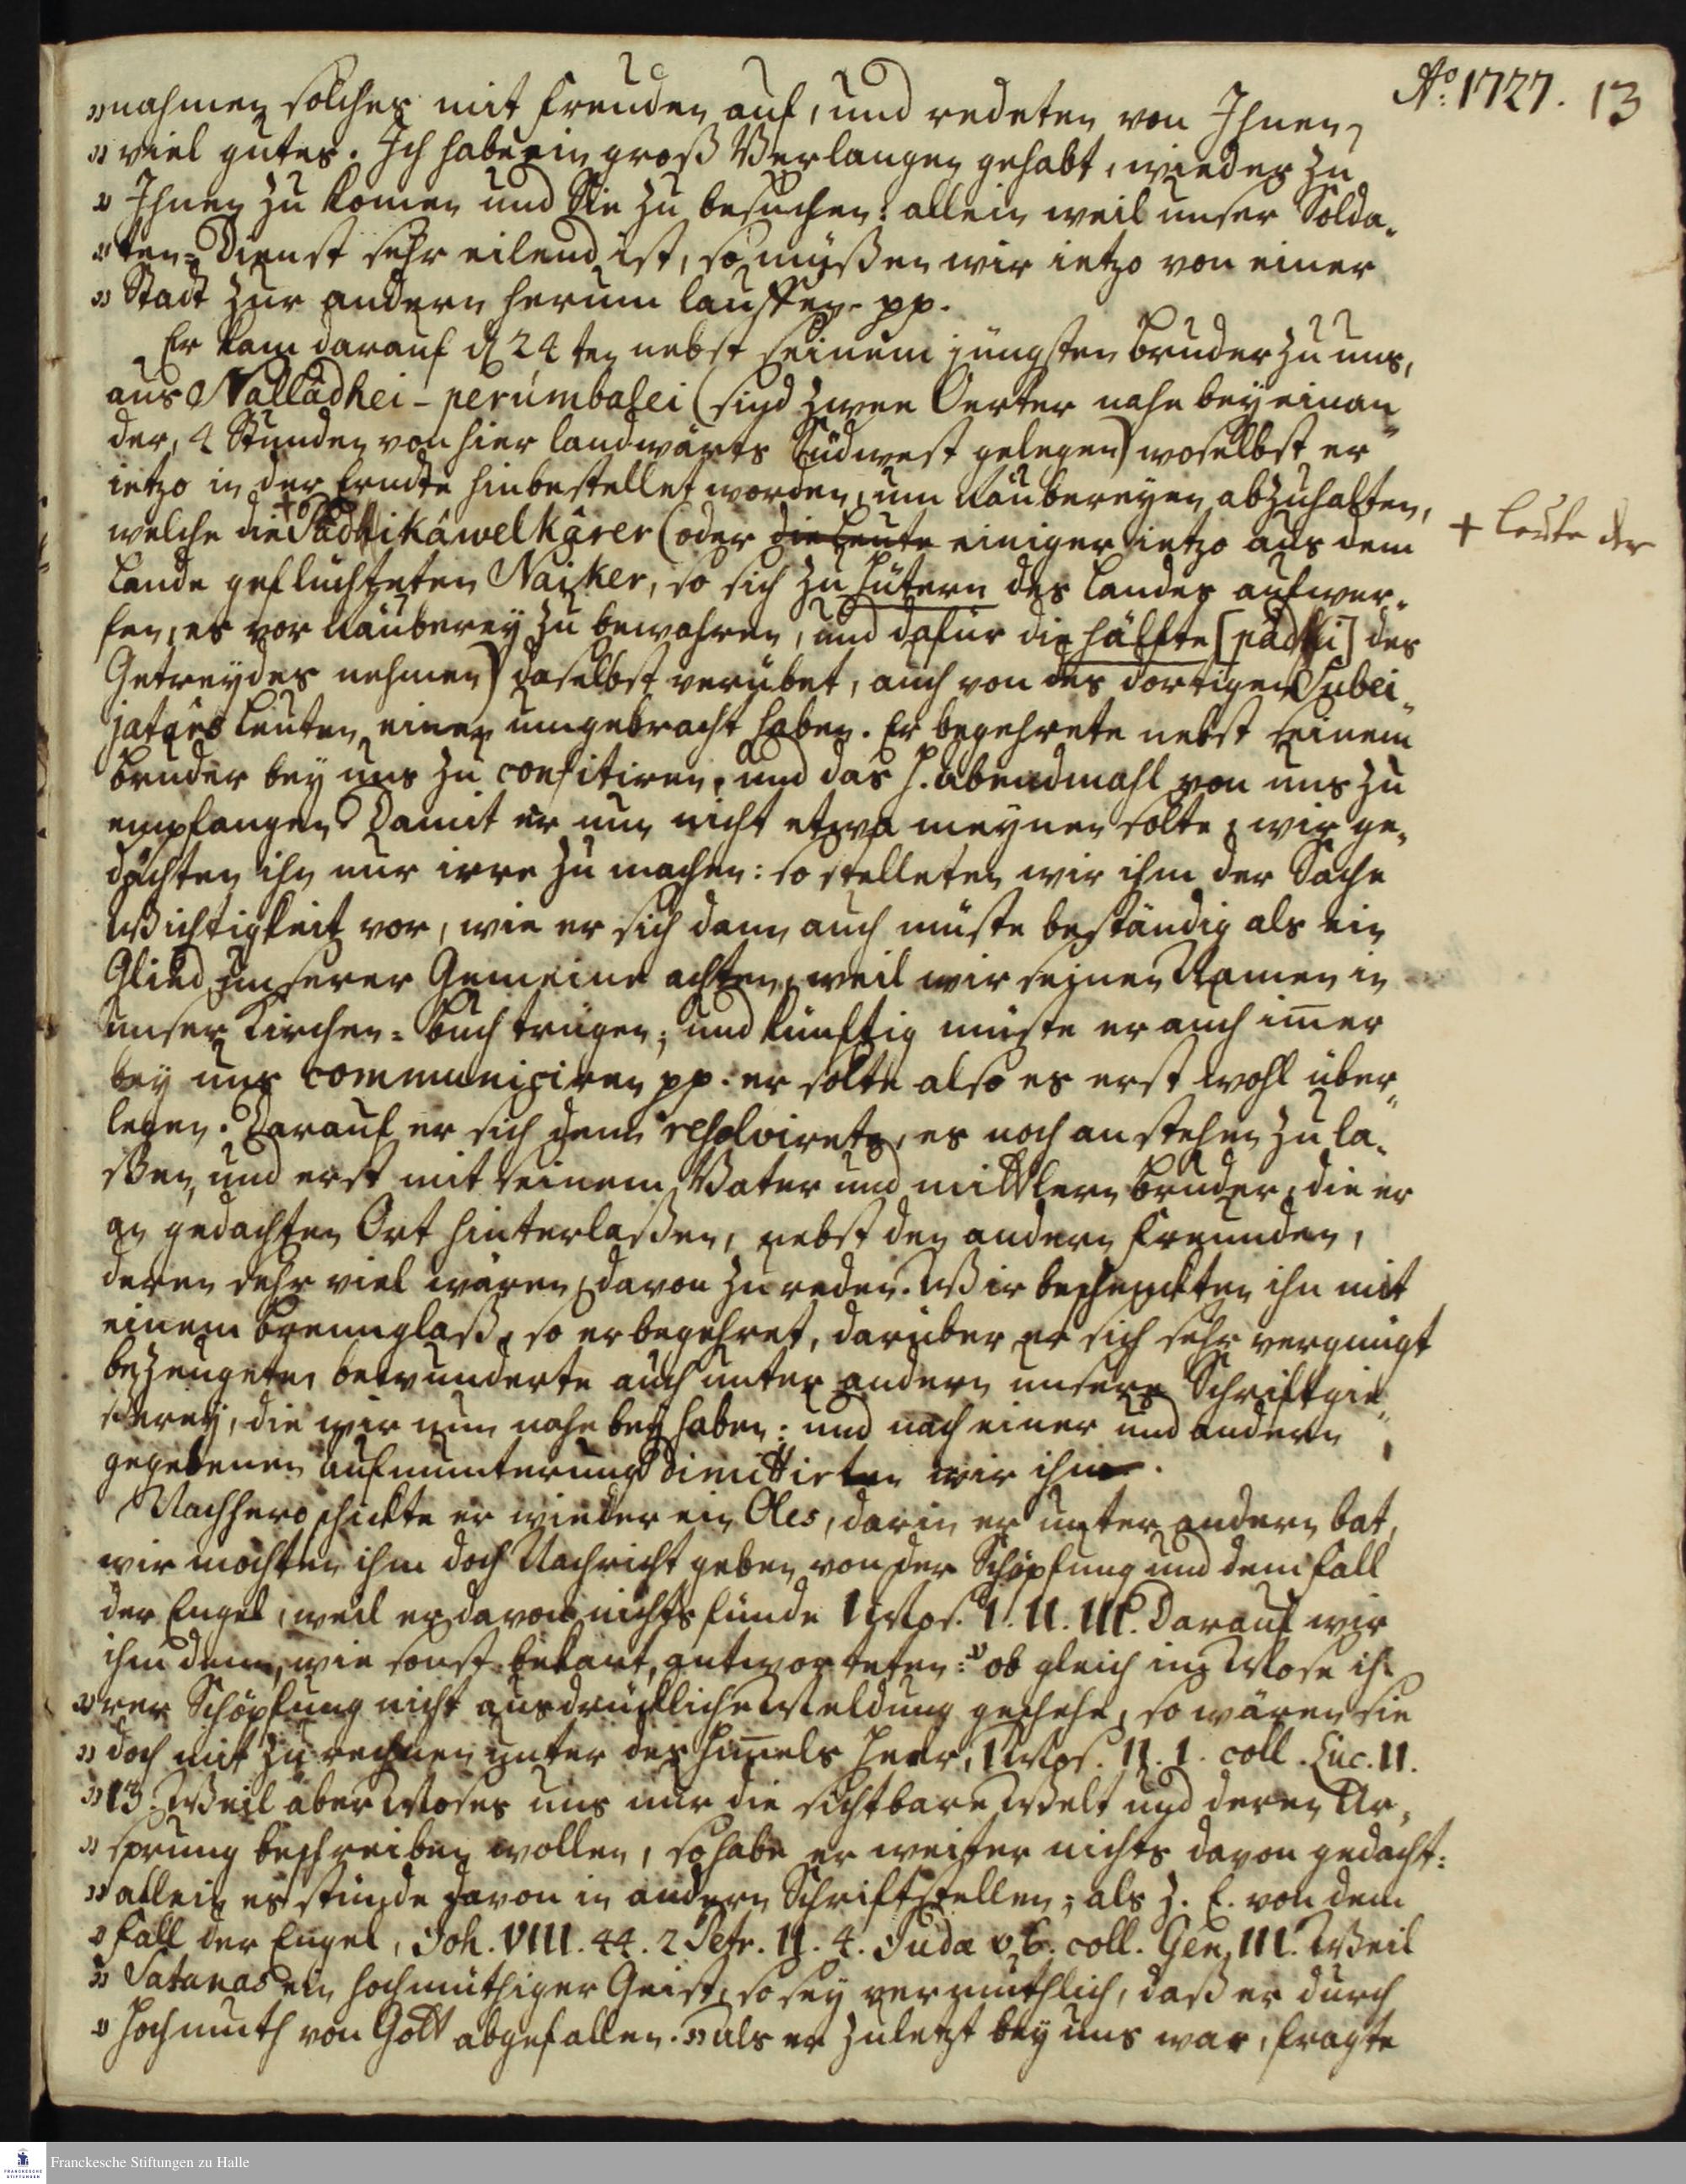 Aõ: 1727. 13
„nahmen solches mit Freuden auf, und redeten von Ihnen
„viel gutes. Ich habe ein groß Verlangen gehabt, wieder zu
„Ihnen zu komen und Sie zu besuchen: allein weil unser Solda„
„ten=Dienst sehr eilend ist, so müßen wir ietzo von einer
„Stadt zur andern herum lauffen. pp.
Er kam darauf d 24ten nebst seinem jüngsten Bruder zu uns,
aus Nallâdhei-perúmbalei (sind zwee Oerter nahe bey einan„
der, 4 Stunden von hier landwärts Südwest gelegen) woselbst er
ietzo in der Erndte hinbestellet worden, um Räubereyen abzuhalten,
welche die + Pâdhikâwelkârer (oder die Leute einiger ietzo aus dem
+ Leute der
Lande geflüchteten Naiker, so sich zu Hütern des Landes aufwer„
fen, es vor Räuberey zu bewahren, und dafür die Hälfte [pâdhi] des
Getreydes nehmen) daselbst verübet, auch von des dortigen Subei„
jatârs Leuten einen umgebracht haben. Er begehrete nebst seinem
Bruder bey uns zu confitiren, und das H. Abendmahl von uns zu
empfangen. Damit er nun nicht etwa meynen solte, wir ge„
dächten ihn nur irre zu machen: so stelleten wir ihm der Sache
Wichtigkeit vor, wie er sich dann auch müste beständig als ein
Glied unserer Gemeine achten, weil wir seinen Namen in
unser Kirchen=Buch trügen; und künftig müste er auch im̅er
bey uns communiciren pp. er solte also es erst wohl über„
legen. Darauf er sich denn resolvirete, es noch anstehen zu la„
ßen, und erst mit seinem Vater und mittlern Bruder, die er
an gedachten Ort hinterlaßen, nebst den andern Freunden,
deren sehr viel wären, davon zu reden. Wir beschenckten ihn mit
einem Brennglaß, so er begehret, darüber er sich sehr vergnügt
bezeugete, bewunderte auch unter andern unsere Schriftgie„
ßerey, die wir nun nahe bey haben: und nach einer und andern
gegebenen Aufmunterung dimittirten wir ihn.
Nachhero schickte er wieder ein Oles, darin er unter andern bat,
wir möchten ihm doch Nachricht geben von der Schöpfung und dem Fall
der Engel, weil er davon nichts fünde 1 Mos. I. II. III. Darauf wir
ihm denn, wie sonst bekant, antworteten: „ob gleich im Mose ih„
„rer Schöpfung nicht ausdrückliche Meldung geschehe, so wären sie
„doch mit zu rechnen unter des Him̅els Heer, 1 Mos. II. 1. coll. Luc. II.
„13. Weil aber Moses uns nur die sichtbare Welt und deren Ur„
„sprung beschreiben wollen, so habe er weiter nichts davon gedacht:
„allein es stünde davon in andern Schriftstellen; als z. E. von dem
„Fall der Engel, Joh. VIII. 44. 2 Petr. II. 4. Judæ v. 6. coll. Gen. III. Weil
„Satanas ein hochmüthiger Geist, so sey vermuthlich, daß er durch
„Hochmuth von Gott abgefallen.„ Als er zuletzt bey uns war, fragte
Franckesche Stiftungen zu Halle